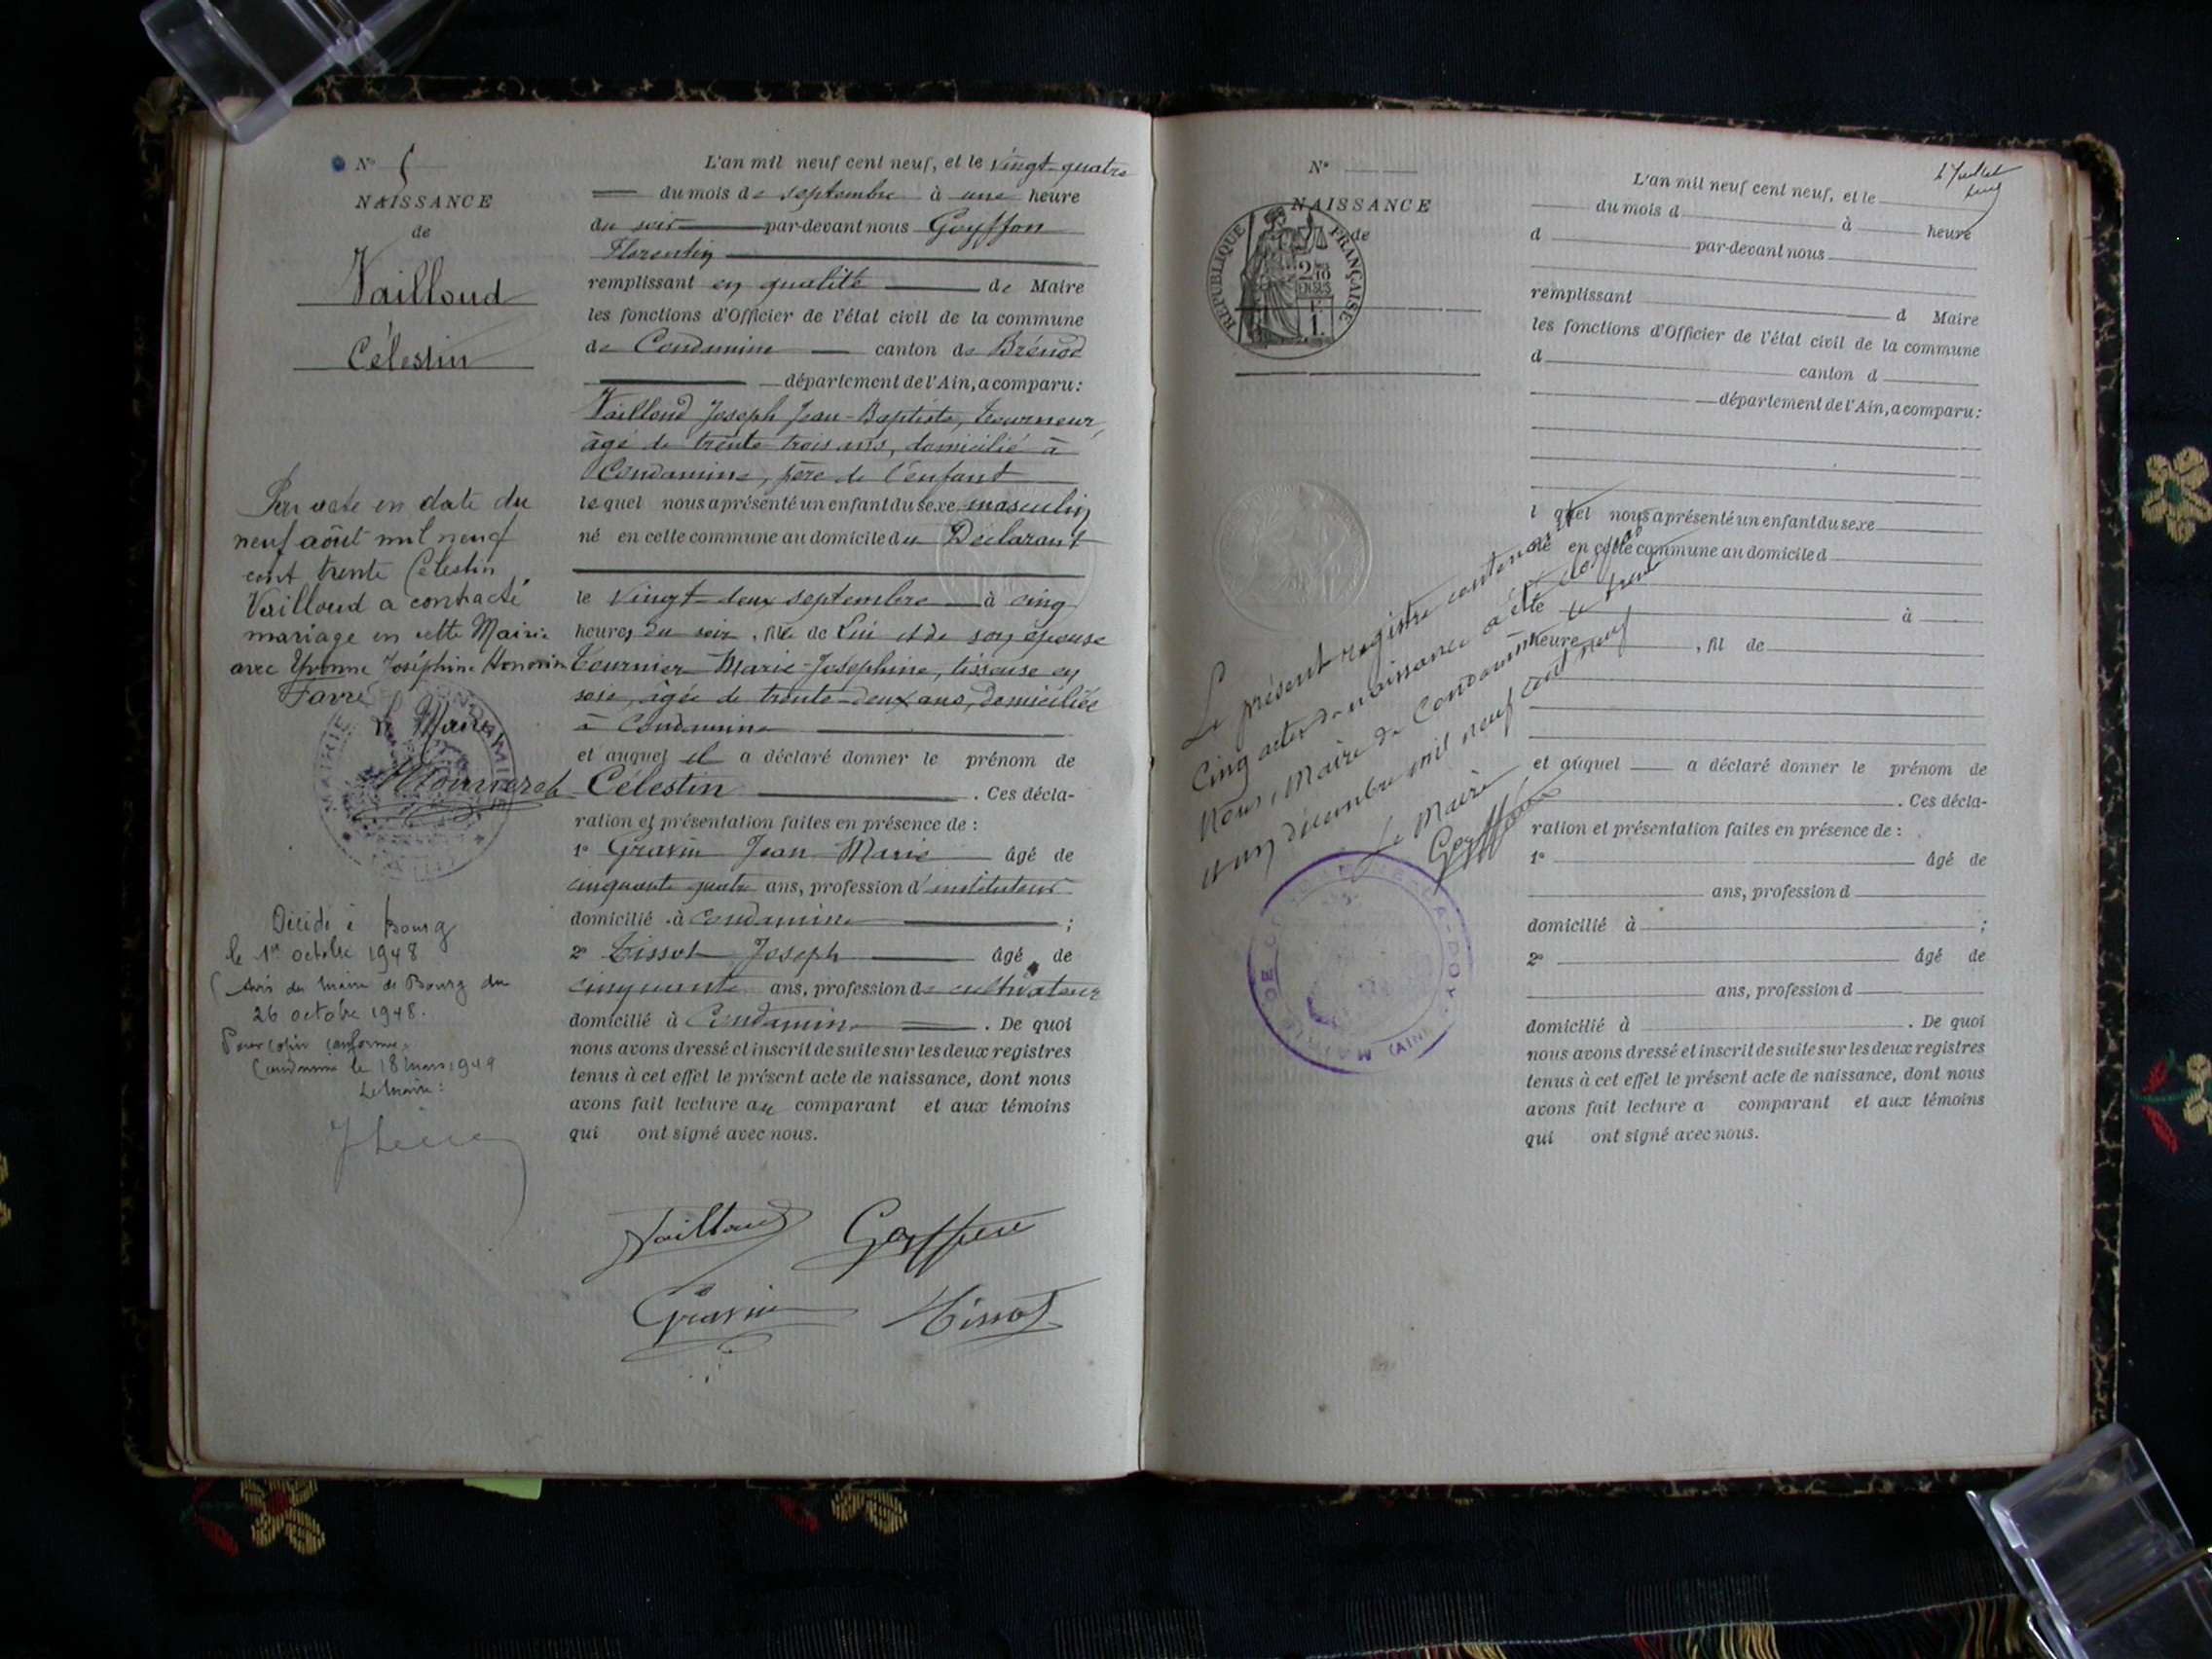 N° 5
NAISSANCE
de
Vailloud
Célestin
Par acte en date du
neuf août mil neuf
cent trente Célestin
Vailloud a contracté
mariage en cette Mairie
avec Yvonne Joséphine Honorine
Favre
Le Maire
Décédé à Bourg
le 1er octobre 1948
(Avis du Maire de Bourg du
26 octobre 1948.
Pour copie conforme
Condamine le 18 mars 1949
Le Maire:
L'an mil neuf cent neuf, et le vingt-quatre
du mois de septembre à une heure
du soir par-devant nous Goyffon
Florentin
remplissant en qualité de Maire
les fonctions d'Officier de l'état civil de la commune
de Condamine canton de Brénod
département de l'Ain, a comparu:
Vailloud Joseph Jean-Baptiste, tourneur,
âgé de trente trois ans, domicilié à
Condamine, père de l'enfant
lequel nous a présenté un enfant du sexe masculin
né en cette commune au domicile du Déclarant
le vingt-deux septembre à cinq
heures du soir, fils de lui et de son épouse
Tournier Marie-Josephine, tisseuse en
soie, âgée de trente-deux ans, domiciliée
à Condamine
et auquel il a déclaré donner le prénom de
Célestin . Ces décla-
ration et présentation faites en présence de :
1° Gravin Jean Marie âgé de
cinquante quatre ans, profession d'instituteur
domicilié à Condamine ;
2° Tissot Joseph âgé de
cinquante ans, profession de cultivateur
domicilié à Condamine . De quoi
nous avons dressé et inscrit de suite sur les deux registres
tenus à cet effet le présent acte de naissance, dont nous
avons fait lecture au comparant et aux témoins
qui ont signé avec nous.
Vailloud Goyffon
Gravin Tissot
N°
NAISSANCE
de
RÉPUBLIQUE FRANÇAISE
2/10
EN SUS
1
Le présent registre contenant
cinq actes de naissance a été clos par
Nous, Maire de Condamine le trente
et un décembre mil neuf cent neuf
Le Maire
Goyffon
MAIRIE DE (AIN)
L'an mil neuf cent neuf, et le
du mois d à heure
d par-devant nous
remplissant d Maire
les fonctions d'Officier de l'état civil de la commune
d canton d
département de l'Ain, a comparu:
l quel nous a présenté un enfant du sexe
né en cette commune au domicile d
le à
heure , fil de
et auquel a déclaré donner le prénom de
. Ces décla-
ration et présentation faites en présence de :
1° âgé de
ans, profession d
domicilié à ;
2° âgé de
ans, profession d
domicilié à . De quoi
nous avons dressé et inscrit de suite sur les deux registres
tenus à cet effet le présent acte de naissance, dont nous
avons fait lecture a comparant et aux témoins
qui ont signé avec nous.